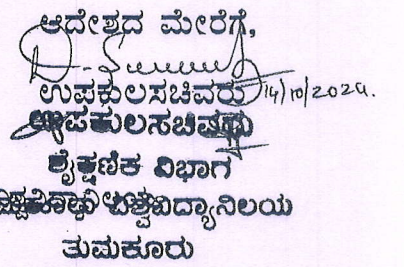 ಆದೇಶದ ಮೇರೆಗೆ,
ಉಪಕುಲಸಚಿವರು 14/10/2024.
ಉಪಕುಲಸಚಿವರು
ಶೈಕ್ಷಣಿಕ ವಿಭಾಗ
ವಿಶ್ವವಿದ್ಯಾನಿಲಯ
ತುಮಕೂರು